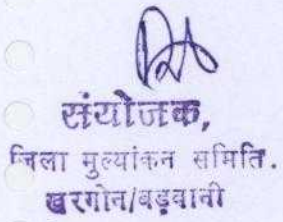 संयोजक,
जिला मुल्यांकन समिति.
खरगोन/बड़वानी